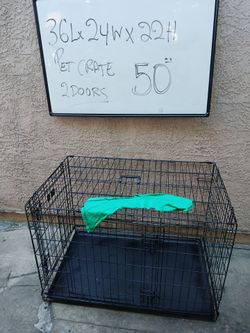 36Lx24Wx22H
PET CRATE
2DOORS
50°°